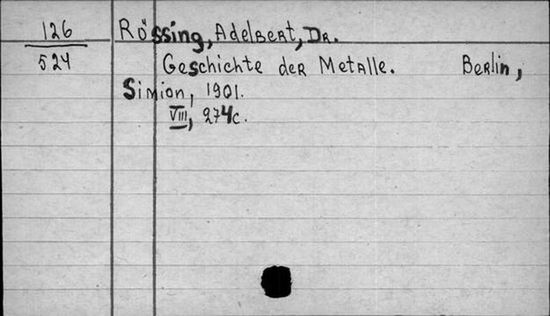 126
524
Rössing, Adelbert, Dr.
Geschichte der Metalle. Berlin,
Simion, 1901.
VIII, 274c.